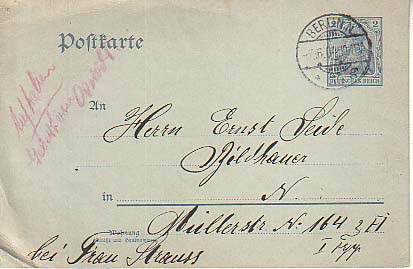 Postkarte
BERLIN
2
DEUTSCHES REICH
An
Herrn Ernst Seide
Bildhauer
in N.
Wohnung
(Straße und Hausnummer)
Müllerstr. N. 164
bei Frau Strauss